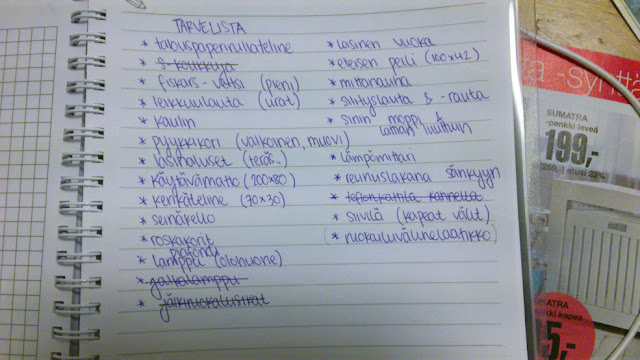 TARVELISTA
* talouspaperirullateline
* S-koukkuja
* fiskars-veitsi (pieni)
* leikkuulauta (urat)
* kaulin
* pyykkikori (valkoinen, muovi)
* lasinaluset (teräs..)
* käytävämatto (200x80)
* kenkäteline (70x30)
* seinäkello
* roskakorit
* lamppu (olohuone)
* jalkalamppu
* jälkiruokalusikat
* lasinen vuoka
* eteisen peili (100x42)
* mittanauha
* silityslauta & -rauta
* sinin moppi &
lattian luuttuun
* lämpömittari
* reunuslakana sänkyyn
* teflonkattila kannella
* siivilä (kapeat välit)
* ruokailuvälinelaatikko
ka -Syntt
SUMATRA
-penkki leveä
199,-
(259,-) etusi 23%
ATRA
kki kapea
5,-